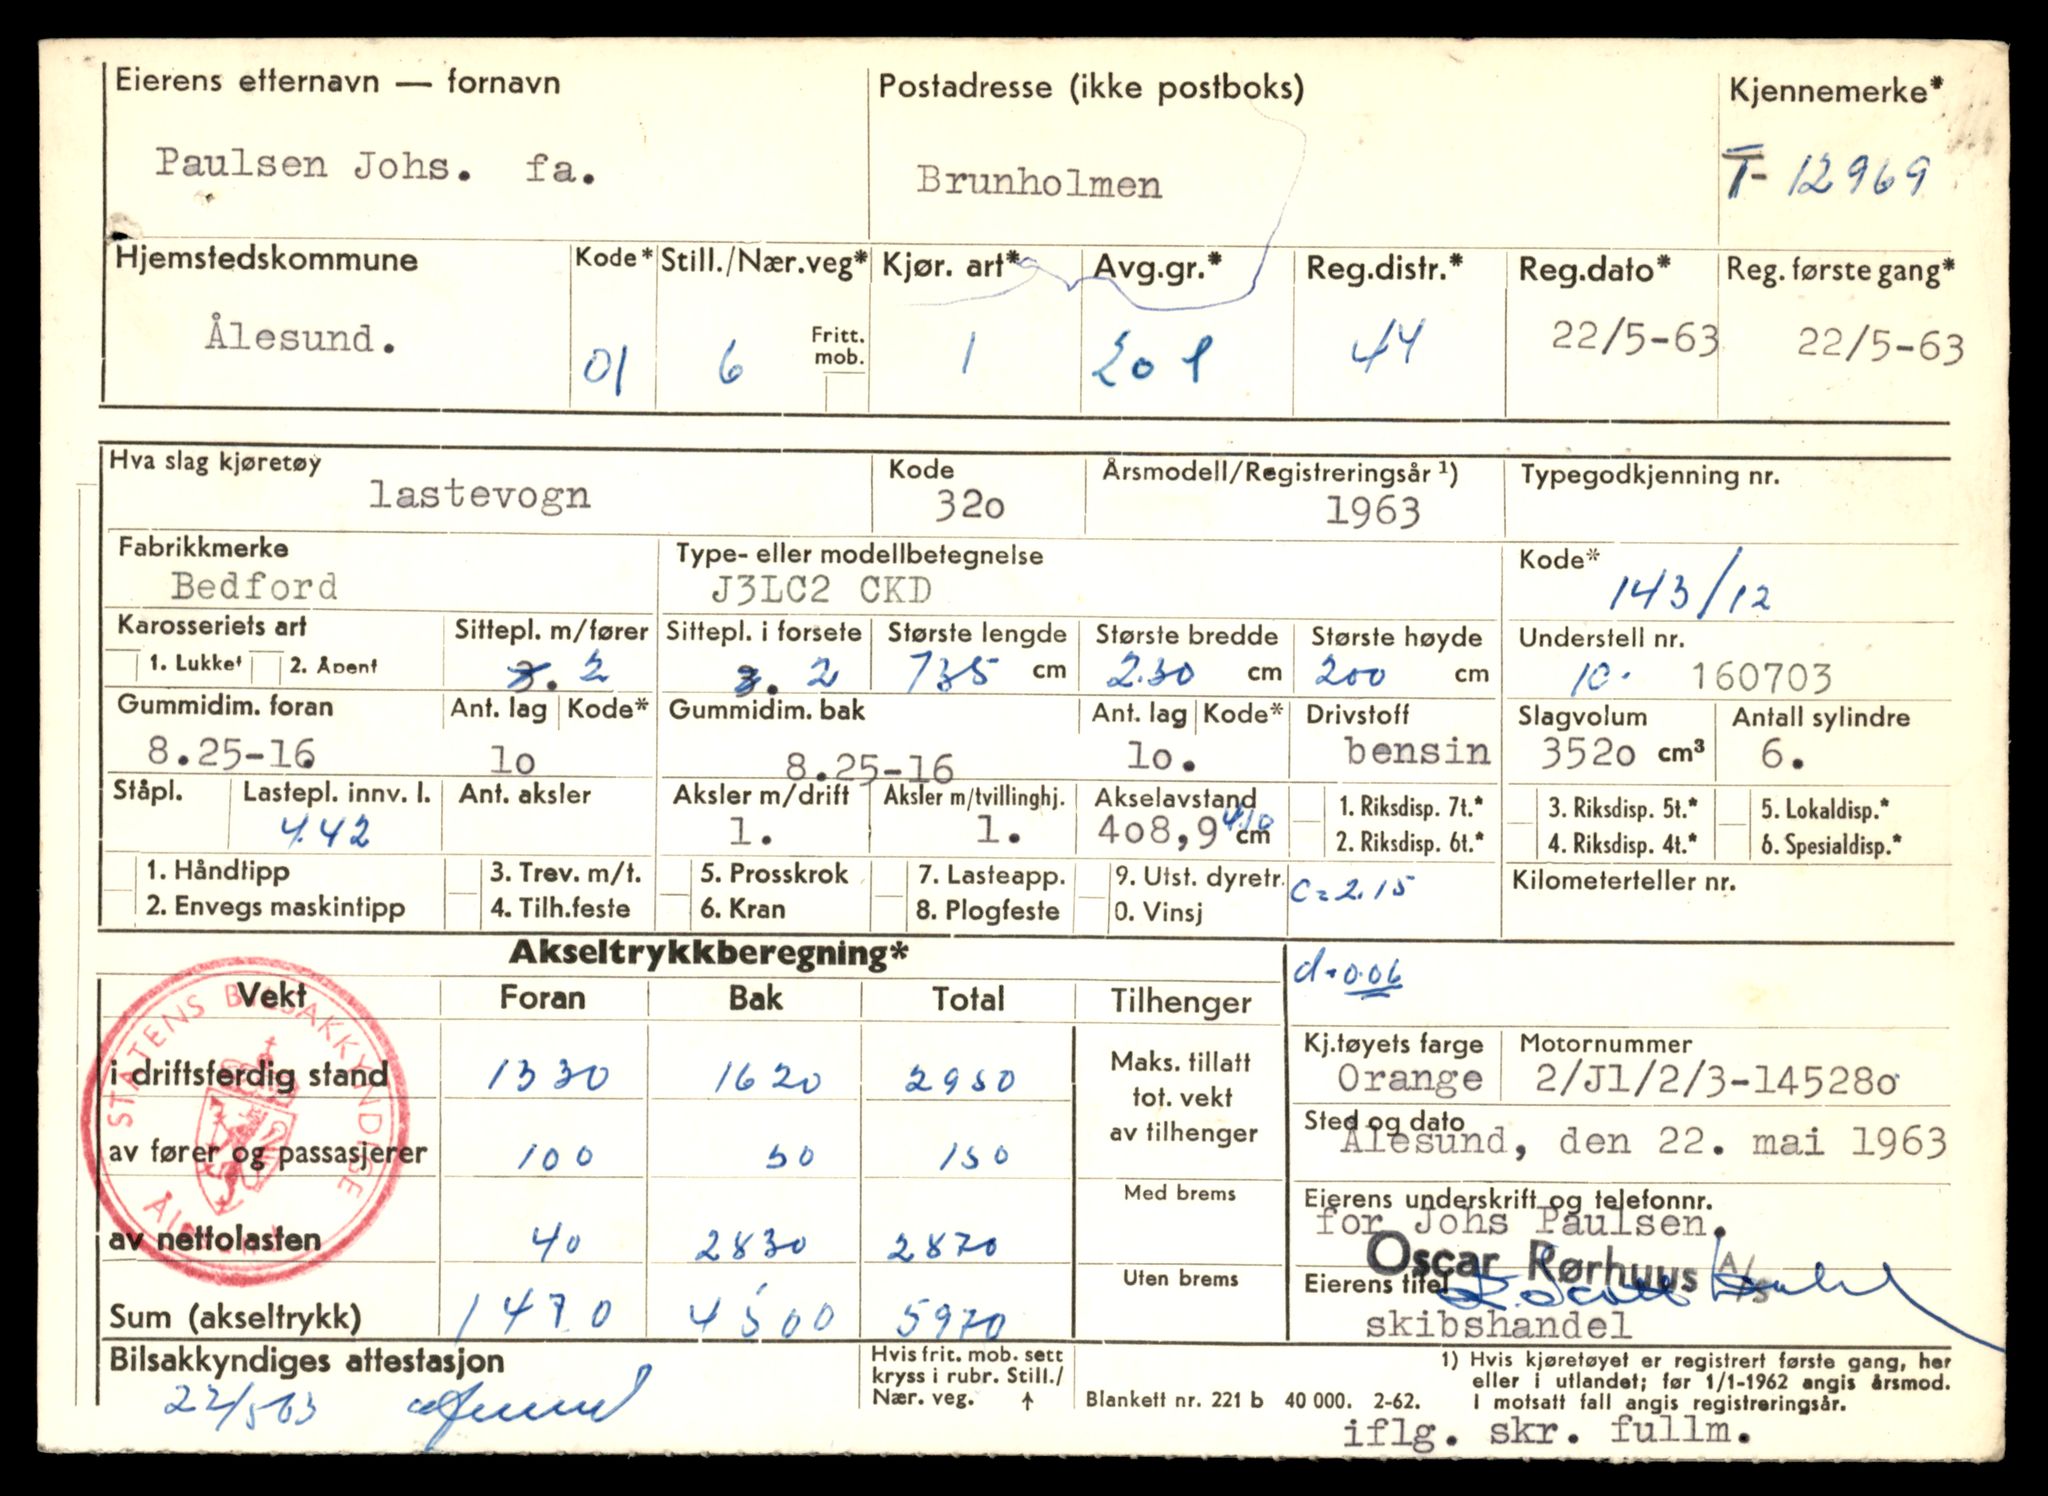 Eierens etternavn — fornavn
Postadresse (ikke postboks)
Kjennemerke*
Paulsen Johs. fa.
Brunholmen
T- 12969
Hjemstedskommune Kode* Still./Nær.veg* Kjør. art* Avg.gr.* Reg.distr.* Reg.dato* Reg. første gang*
Fritt. mob.
Ålesund. 01 6 1 201 44 22/5-63 22/5-63
Hva slag kjøretøy Kode Årsmodell/Registreringsår ¹) Typegodkjenning nr.
lastevogn 32o 1963
Fabrikkmerke Type- eller modellbetegnelse Kode*
Bedford J3LC2 CKD 143/12
Karosseriets art Sittepl. m/fører Sittepl. i forsete Største lengde Største bredde Største høyde Understell nr.
1. Lukket 2. Åpent 3. 2 3. 2 735 cm 230 cm 200 cm 10. 160703
Gummidim. foran Ant. lag Kode* Gummidim. bak Ant. lag Kode* Drivstoff Slagvolum Antall sylindre
8.25-16 lo 8.25-16 lo. bensin 352o cm³ 6.
Ståpl. Lastepl. innv. l. Ant. aksler Aksler m/drift Aksler m/tvillinghj. Akselavstand
4.42 1. 1. 4o8,9 cm 410
1. Riksdisp. 7t.* 3. Riksdisp. 5t.* 5. Lokaldisp.*
2. Riksdisp. 6t.* 4. Riksdisp. 4t.* 6. Spesialdisp.*
1. Håndtipp 3. Trev. m/t. 5. Prosskrok 7. Lasteapp. 9. Utst. dyretr. c=2.15 Kilometerteller nr.
2. Envegs maskintipp 4. Tilh.feste 6. Kran 8. Plogfeste 0. Vinsj
Akseltrykkberegning*
d=0.06
Vekt Foran Bak Total Tilhenger
i driftsferdig stand 1330 1620 2950
av fører og passasjerer 100 50 150
av nettolasten 40 2830 2870
Sum (akseltrykk) 1470 4500 5970
Maks. tillatt
tot. vekt
av tilhenger
Med brems
Uten brems
STATENS BILSAKKYNDIGE
Kj.tøyets farge Motornummer
Orange 2/J1/2/3-14528o
Sted og dato
Ålesund, den 22. mai 1963
Eierens underskrift og telefonnr.
for Johs Paulsen.
Oscar Rørhuus A/S
Eierens titel
skibshandel
Bilsakkyndiges attestasjon
22/563
Hvis frit. mob. sett
kryss i rubr. Still./
Nær. veg. ↑
Blankett nr. 221 b 40 000. 2-62.
1) Hvis kjøretøyet er registrert første gang, her
eller i utlandet; før 1/1-1962 angis årsmod.
I motsatt fall angis registreringsår.
iflg. skr. fullm.